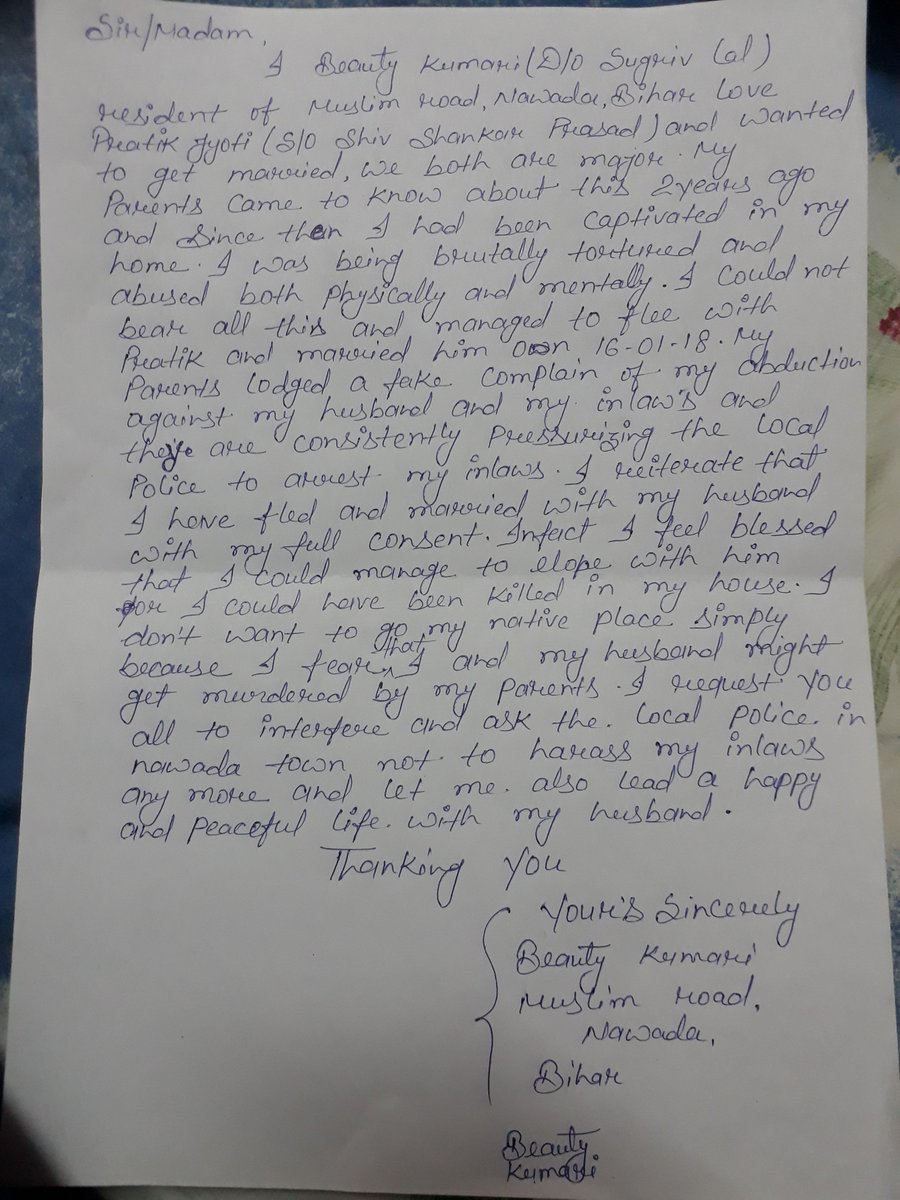 Sir/Madam,
I Beauty Kumari (D/o Sugriv Lal)
resident of Muslim road, Nawada, Bihar Love
Pratik Jyoti (S/o Shiv Shankar Prasad) and wanted
to get married, we both are major. My
Parents came to know about this 2 years ago
and since then I had been captivated in my
home. I was being brutally tortured and
abused both physically and mentally. I could not
bear all this and managed to flee with
Pratik and married him on 16-01-18. My
Parents lodged a fake complain of my abduction
against my husband and my inlaw's and
they are consistently pressurizing the local
Police to arrest my inlaws. I reiterate that
I have fled and married with my husband
with my full consent. Infact I feel blessed
that I could manage to elope with him
or I could have been killed in my house. I
don't want to go my native place simply
because I fear that I and my husband might
get murdered by my parents. I request you
all to interfere and ask the local police in
nawada town not to harass my inlaws
any more and let me also lead a happy
and peaceful life with my husband.
Thanking you
Your's Sincerely
Beauty Kumari
Muslim road,
Nawada,
Bihar
Beauty
Kumari